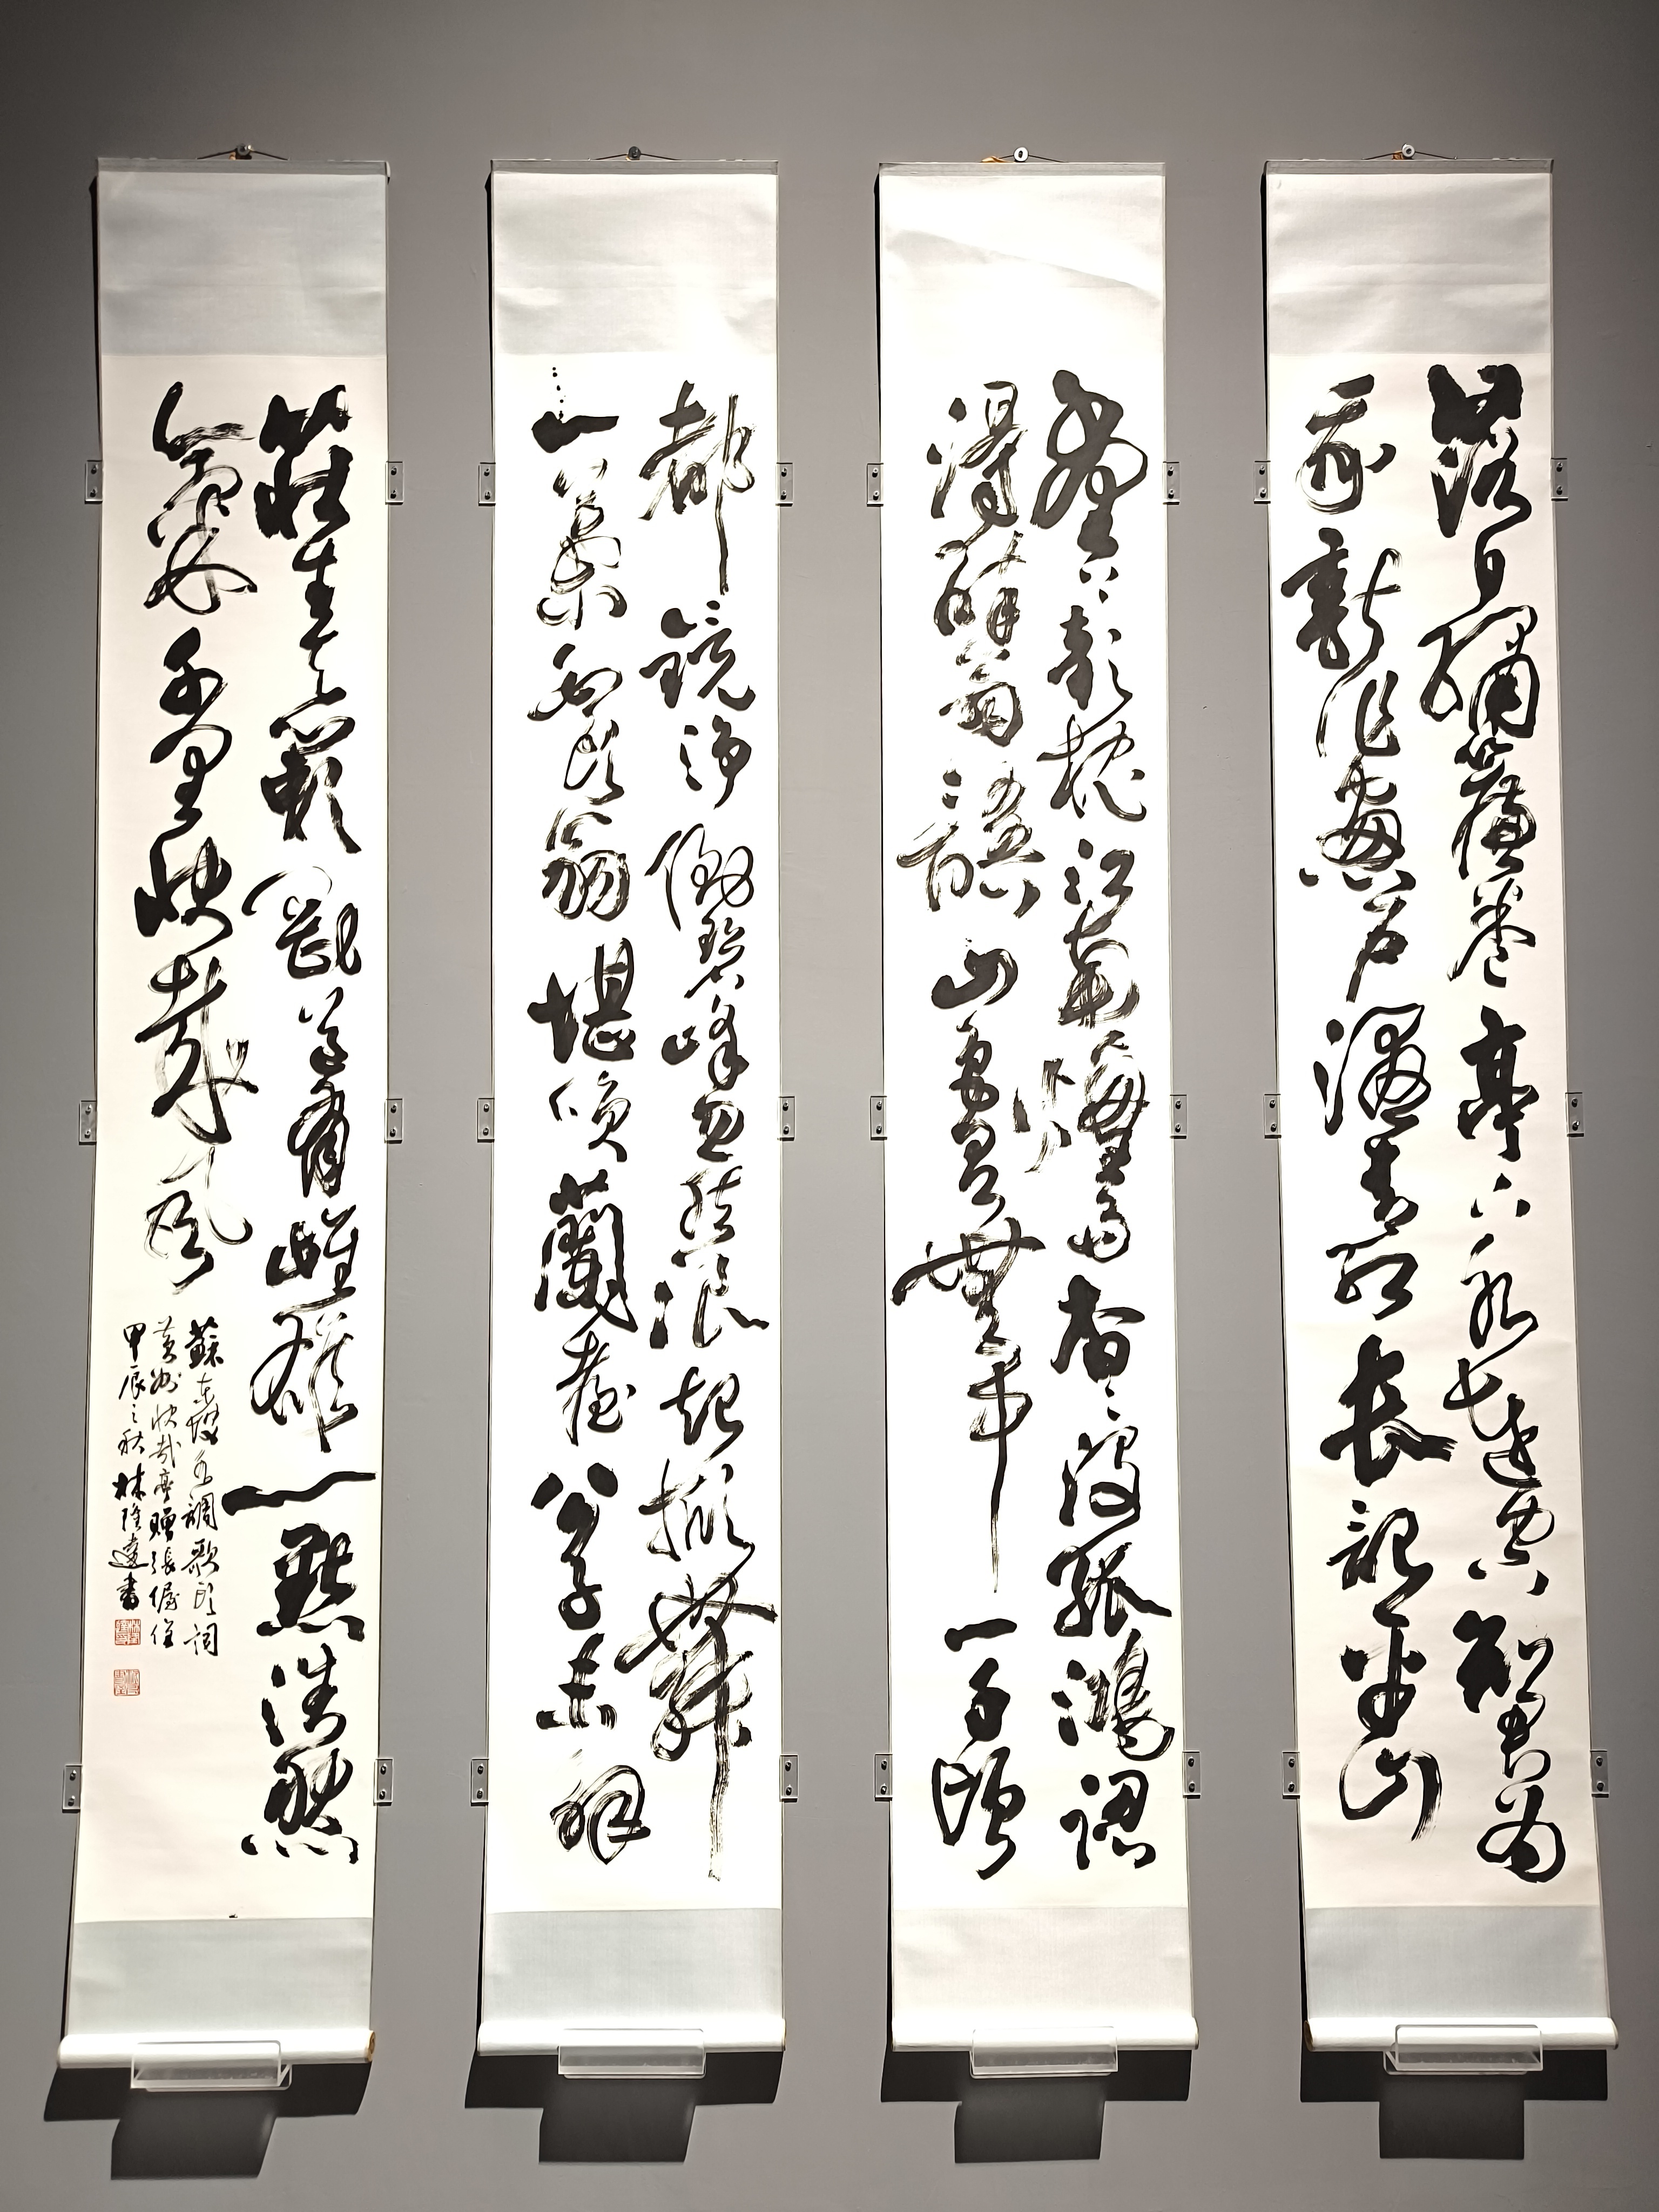 落日繡簾卷亭下水連空知君為
我新作窗戶濕青紅長記平山
堂上欹枕江南煙雨杳杳沒孤鴻認
得醉翁語山色有無中一千頃
都鏡淨倒碧峰忽然浪起掀舞
一葉白頭翁堪笑蘭臺公子未解
莊生天籟剛道有雌雄一點浩然
氣千里快哉風
蘇東坡水調歌頭詞
黃州快哉亭贈張偓佺
甲辰之秋 林隆達書